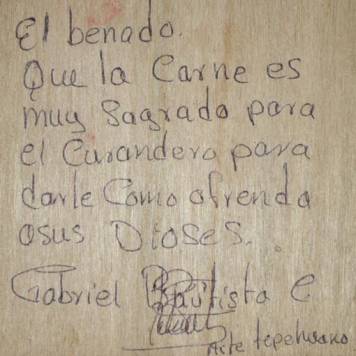 El benado.
Que la Carne es
muy Sagrado para
el Curandero para
darle Como ofrenda
osus Dioses.
Gabriel Bautista C
Arte tepehuano